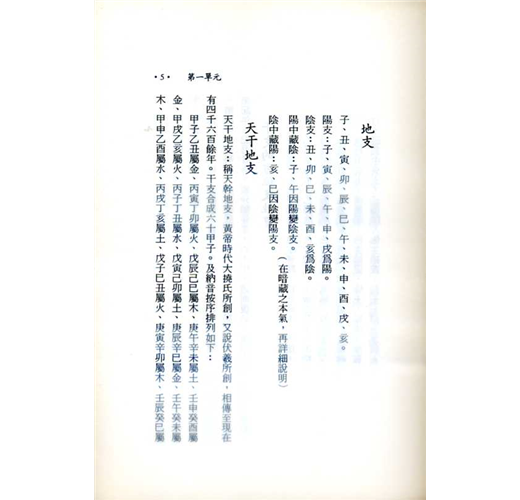 地支
子、丑、寅、卯、辰、巳、午、未、申、酉、戌、亥。
陽支：子、寅、辰、午、申、戌爲陽。
陰支：丑、卯、巳、未、酉、亥爲陰。
陽中藏陰：子、午因陽變陰支。
陰中藏陽：亥、巳因陰變陽支。（在暗藏之本氣，再詳細說明）
天干地支
天干地支：稱天幹地支，黃帝時代大撓氏所創，又說伏羲所創，相傳至現在
有四千六百餘年。干支合成六十甲子。及納音按序排列如下：
甲子乙丑屬金、丙寅丁卯屬火、戊辰己巳屬木、庚午辛未屬土、壬申癸酉屬
金、甲戌乙亥屬火、丙子丁丑屬水、戊寅己卯屬土、庚辰辛巳屬金、壬午癸未屬
木、甲申乙酉屬水、丙戌丁亥屬土、戊子己丑屬火、庚寅辛卯屬木、壬辰癸巳屬
•5• 第一單元